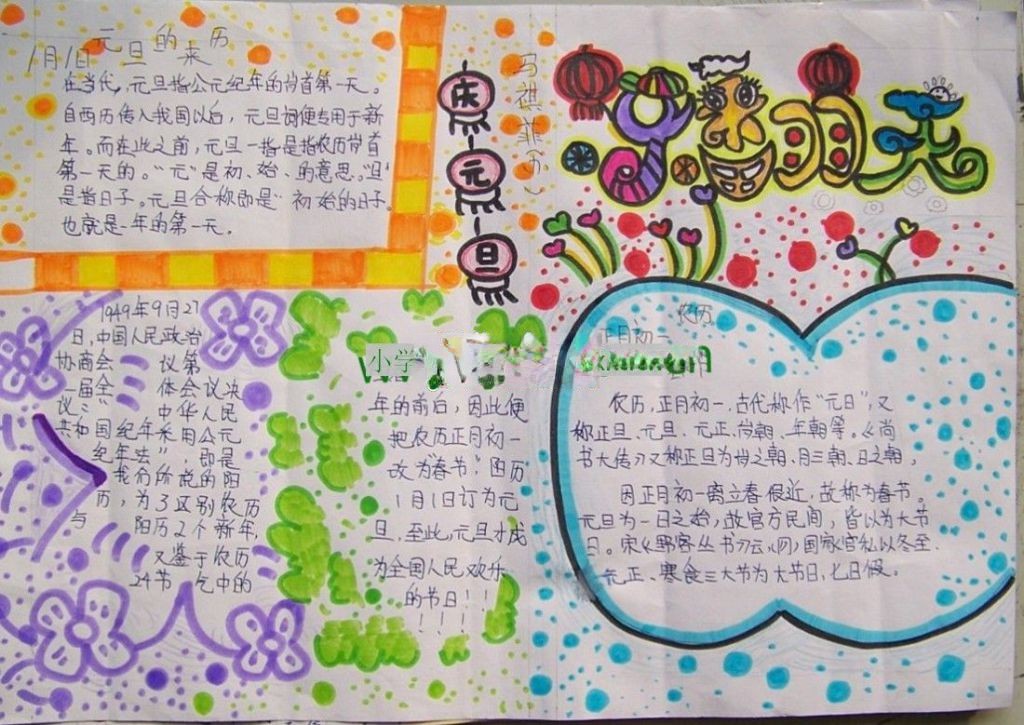 元旦的来历
1月1日
在当代，元旦指公元纪年的岁首第一天。
自西历传入我国以后，元旦一词便专用于新
年。而在此之前，元旦一指是指农历岁首
第一天的。"元"是初、始、的意思。"旦"
是指日子。元旦合称即是"初始的日子。
也就是一年的第一天。
庆
元
旦
马祺菲
明天
1949年9月27
日，中国人民政治
协商会 议第
一届会 体会议决
议： 中华人民
共和国纪年采用公元
纪年法"，即是
我们所说的阳
历，为了区别农历
与 阳历2个新年，
又鉴于农历
24节 乞中的
小学
年的前后，因此便
把农历正月初一
改为"春节"阳历
1月1日订为元
旦，至此，元旦才成
为全国人民欢乐
的节日！！
！！！
农历
正月初一
农历，正月初一，古代称作"元日"，又
称正旦、元旦、元正、岁朝、年朝等。《尚
书大传》又称正旦为岁之朝、月之朝、日之朝，
因正月初一离立春很近，故称为春节。
元旦为一日之始，故官方民间，皆以为大节
日。宋《野客丛书》云，国家官私以冬至、
元正、寒食三大节为大节日，七日假。